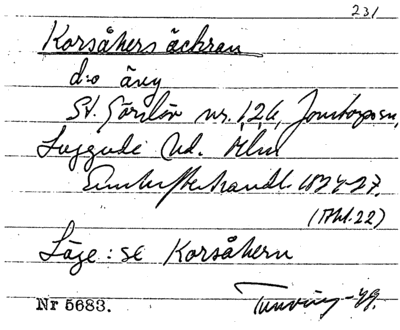 231
Korsåkers äckran
d:o äng
St. Görslöv nr. 1,2,6, Jonstorps sn,
Luggude hd. Mlm
Enskiftehandl. 1824-27.
(Akt. 22)
Läge: se Korsåkern
Nr 5683. Tunving -49.